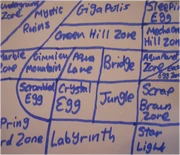 Underground
Zone
Mystic
Ruins
Gigapolis
Green Hill Zone
Sleeping
Egg
Mecha Green
Hill Zone
Marble
Zone
Gimmick
Mountain
Aqua
Lake
Bridge
Aqua
Zone
Scrambled
Egg
Crystal
Egg
Jungle
Scrap
Brain
Zone
Spring
Yard Zone
Labyrinth
Star
Light